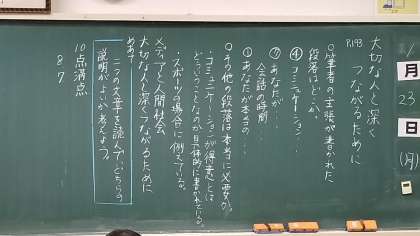 P.193
大切な人と深く
つながるために
○筆者の主張が書かれた
段落はどこか。
④コミュニケーション…
③あなたが…
会話の時間
①あなたが本当の…
○その他の段落は本当に必要か。
・コミュニケーションが得意とは
どういうことなのか具体的に書かれている。
・スポーツの場合に例えている。
メディアと人間社会
大切な人と深くつながるために
めあて
二つの文章を読んで、どちらの
説明がよいか考えよう。
10点満点
8 7
月
23
日
(月)